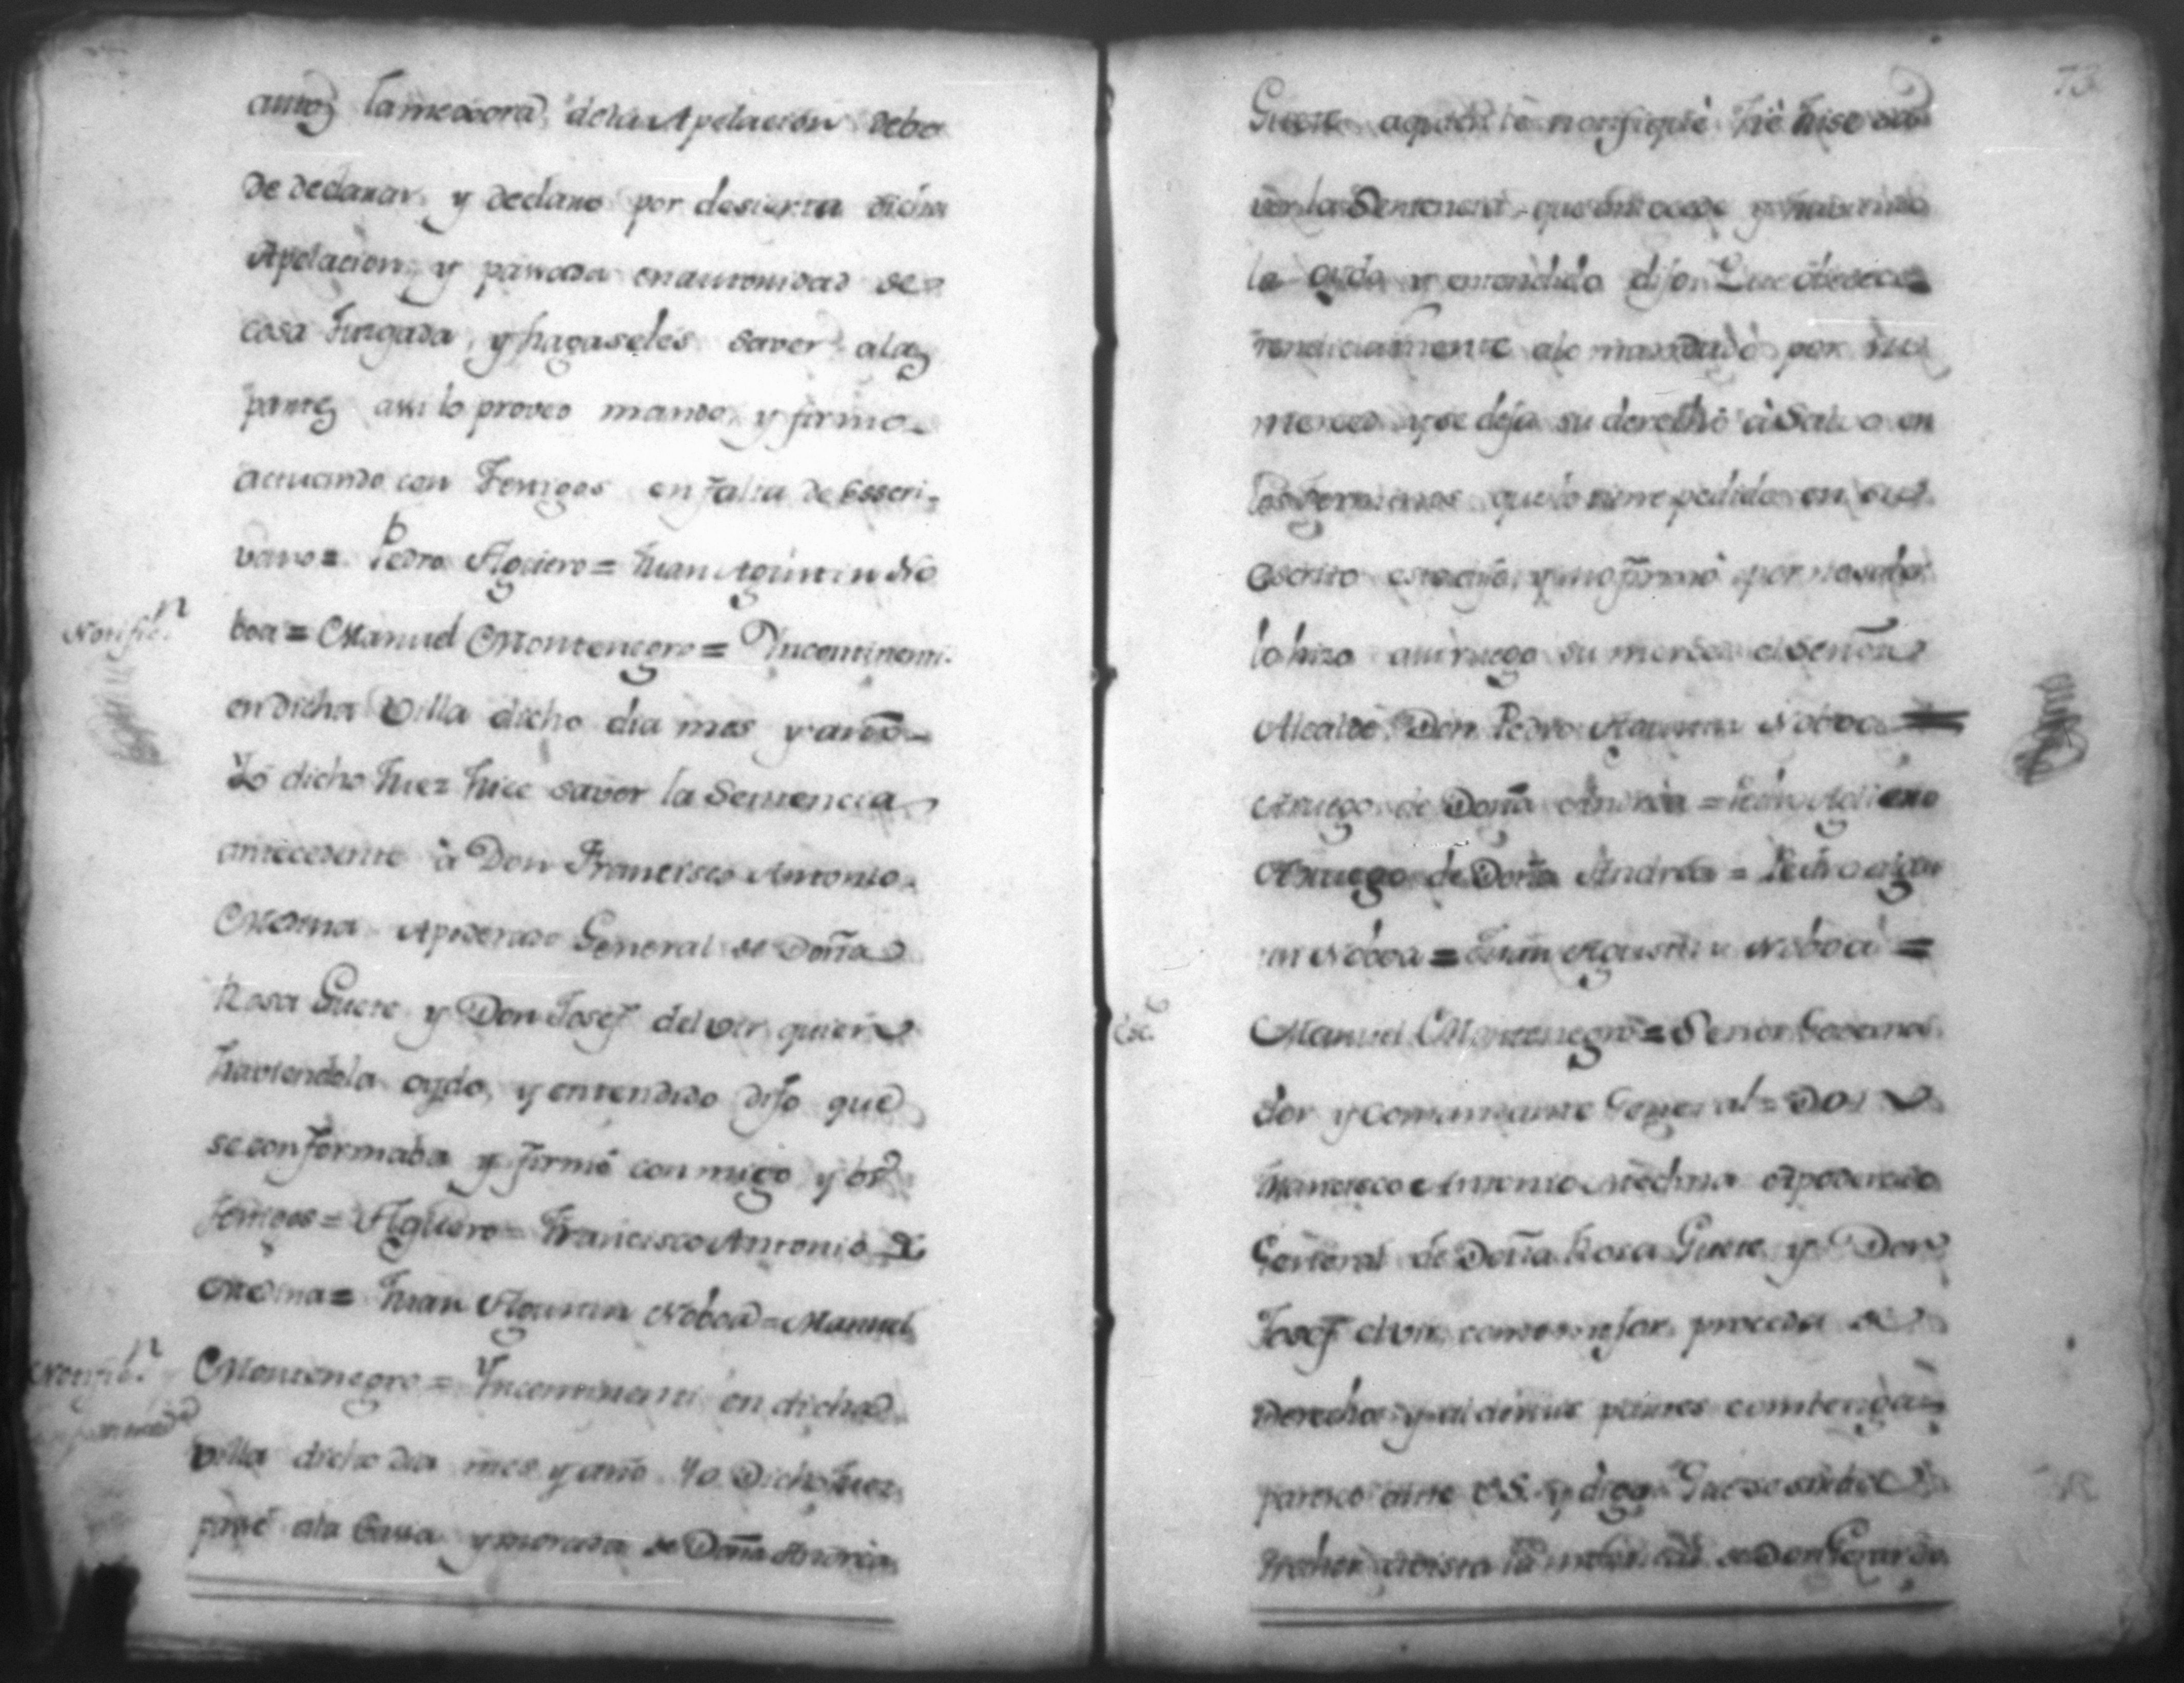 autos la mexora de la Apelacion debo
de declarar y declaro por desierta dicha
Apelacion, y pasada en autoridad de
cosa Jusgada, y hagaseles saver a las
partes assi lo proveo mando, y firmo
actuando con Testigos en falta de Escri-
vano = Pedro Aguero = Juan Agustin No
Notific.n
boa = Manuel Montenegro = Yncontinenti
en dicha Villa dicho dia mes y año
Yo dicho Juez hice saver la Sentencia
antecedente à Don Francisco Antonio
Medina Apoderado General de Doña
Rosa Guete y Don Josef Elvir, quien
haviendola oydo, y entendido dijo que
se conformaba y firmó conmigo y los
testigos = Aguero = Francisco Antonio de
Medina = Juan Agustin Noboa = Manuel
Notific.n
Montenegro = Yncontinenti en dicha
Villa dicho dia mes y año Yo Dicho Juez
pasé a la Casa y morada de Doña Andrea
73
Guete a quien le notifiqué hé hise sa
ver la Sentencia que antecede y haviendo
la oydo y entendido dijo: Que obedece
rendidamente a lo mandado por su
merced y se deja su derecho à Salvo en
los terminos que lo tiene pedido en su
escrito esto dijo, y no firmó por no saber
lo hizo a su ruego su merced el señor
Alcalde Don Pedro Agustin Noboa =
A ruego de Doña Andrea = Pedro Aguero
A ruego de Doña Andrea = Pedro Agus
tin Noboa = Juan Agustin Noboa =
Esc.to
Manuel Montenegro = Señor Governa
dor y Comandante General = Don
Francisco Antonio Medina Apoderado
General de Doña Rosa Guete y Don
Josef Elvir, como mejor proceda de
Derecho y al de mis partes combenga
paresco ante V.S. y digo: Que se sirvió